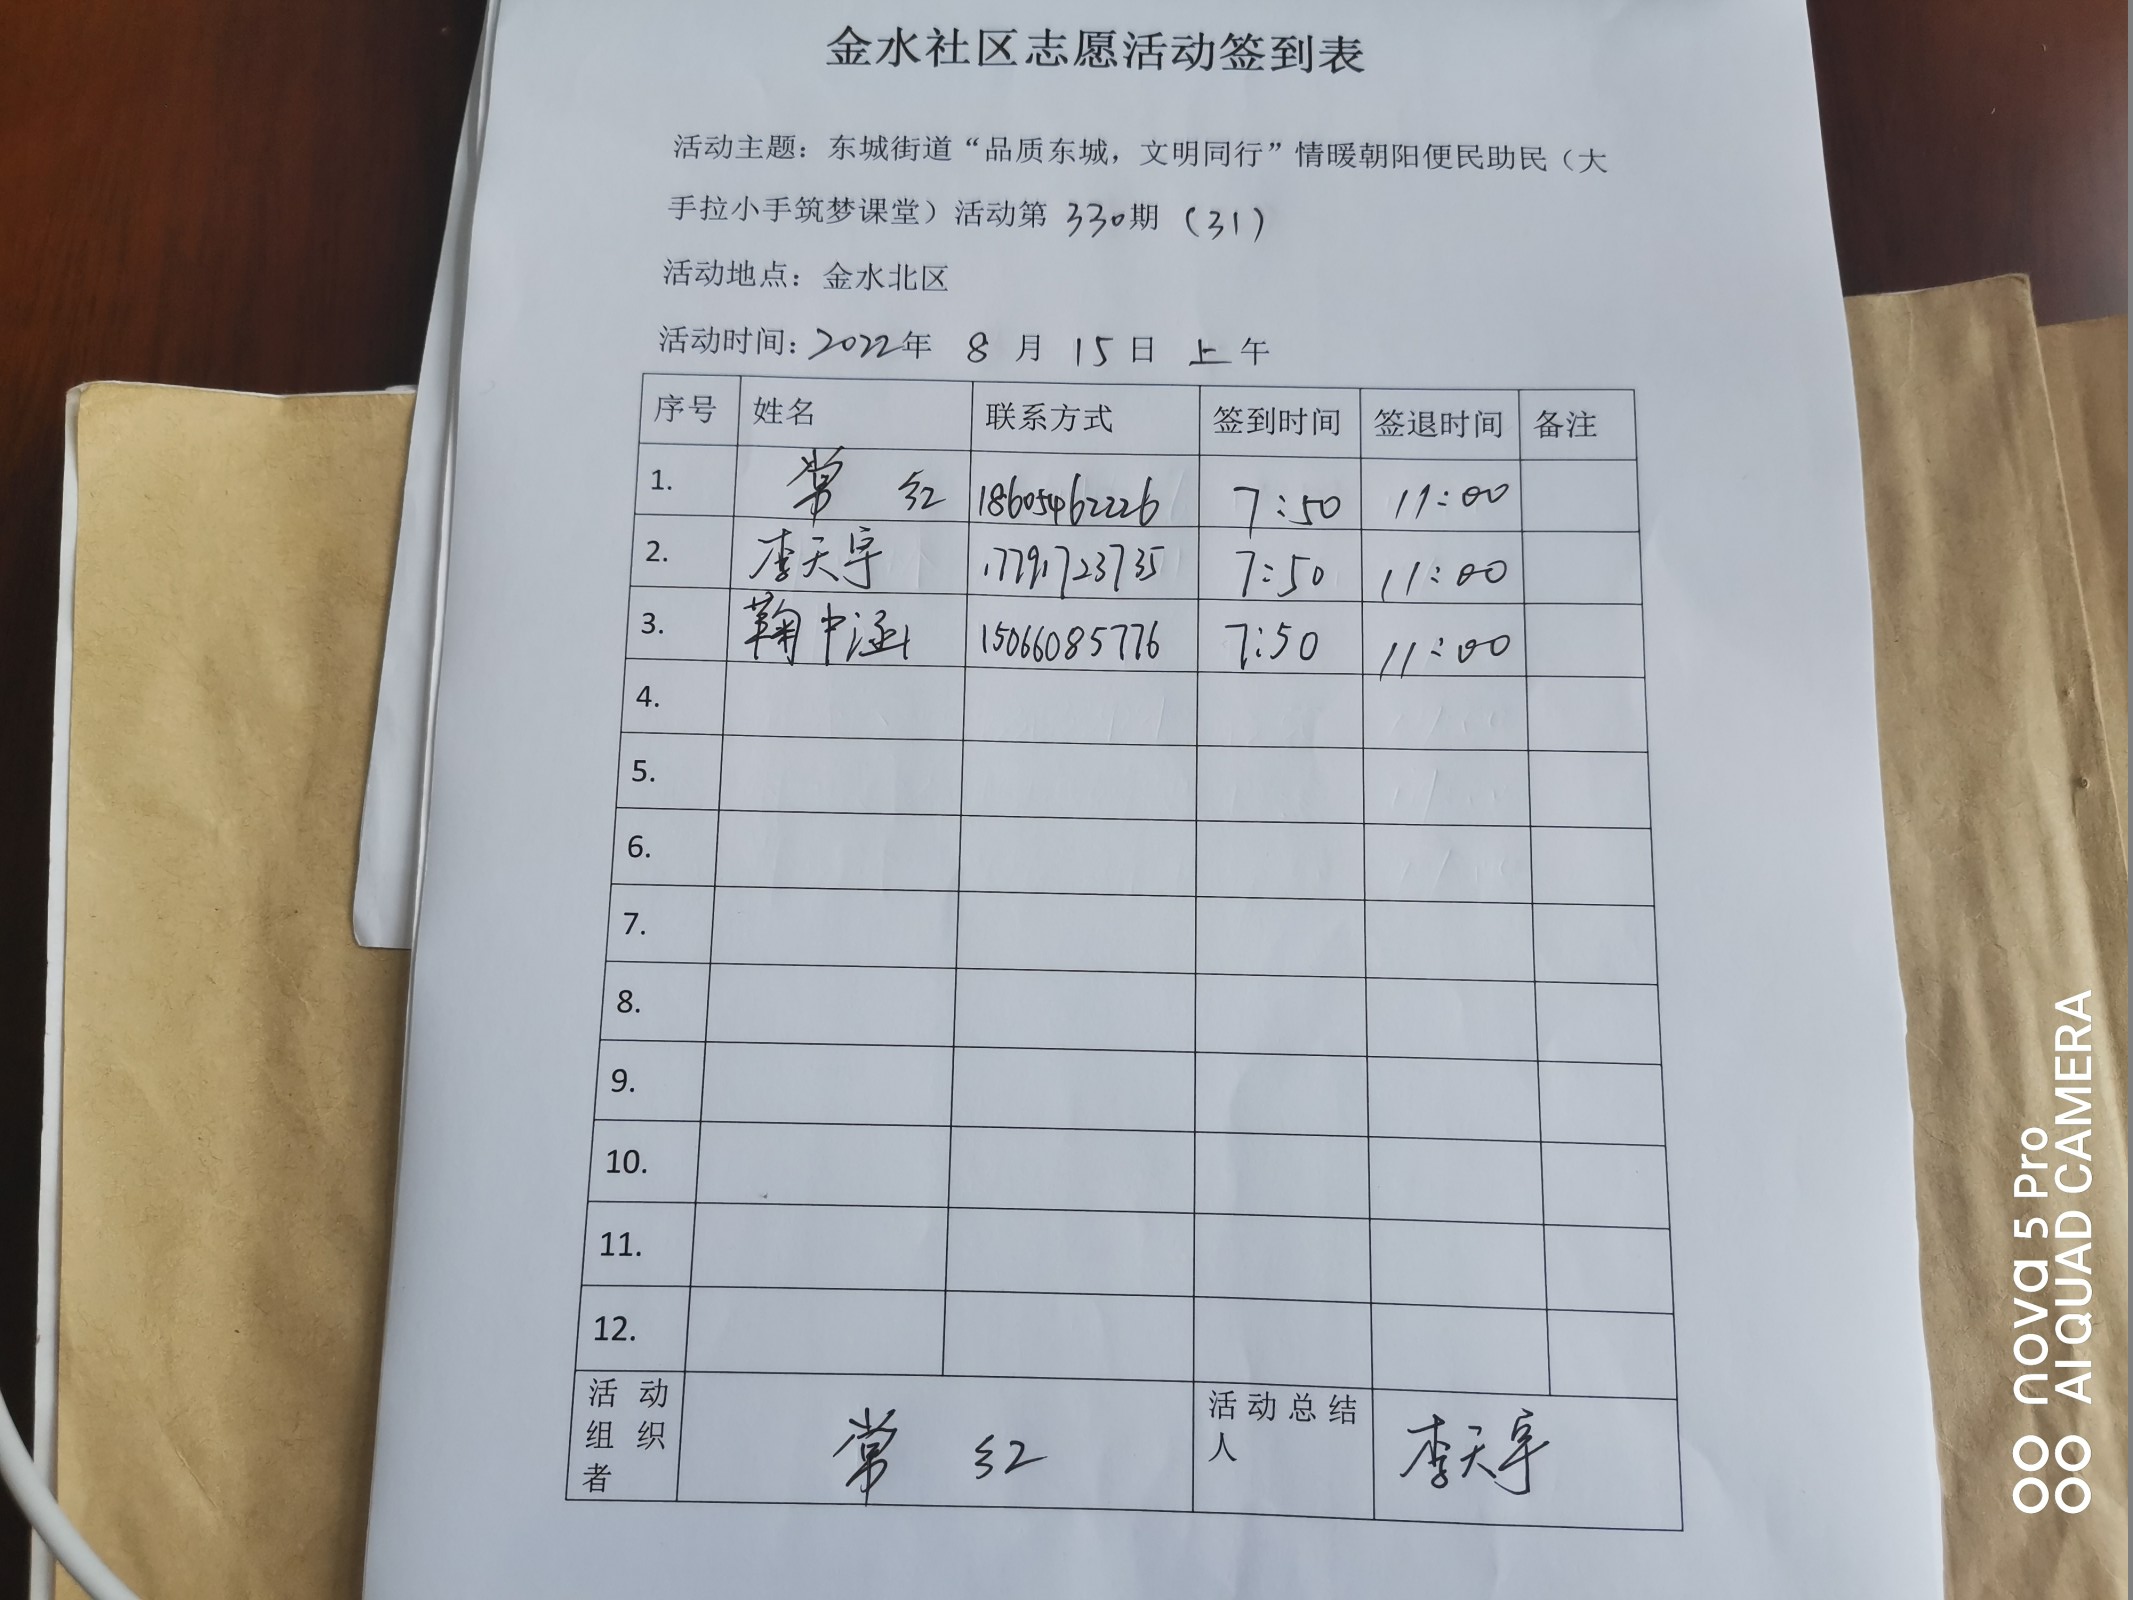 金水社区志愿活动签到表
活动主题：东城街道“品质东城，文明同行”情暖朝阳便民助民（大
手拉小手筑梦课堂）活动第 330期（31）
活动地点：金水北区
活动时间：2022年 8 月 15 日 上午
序号 姓名 联系方式 签到时间 签退时间 备注
1. 常红 18605462226 7:50 11:00
2. 李天宇 17791723735 7:50 11:00
3. 鞠中涵 15066085776 7:50 11:00
4.
5.
6.
7.
8.
9.
10.
11.
12.
活动组织者 常红 活动总结人 李天宇
nova 5 Pro
AI QUAD CAMERA